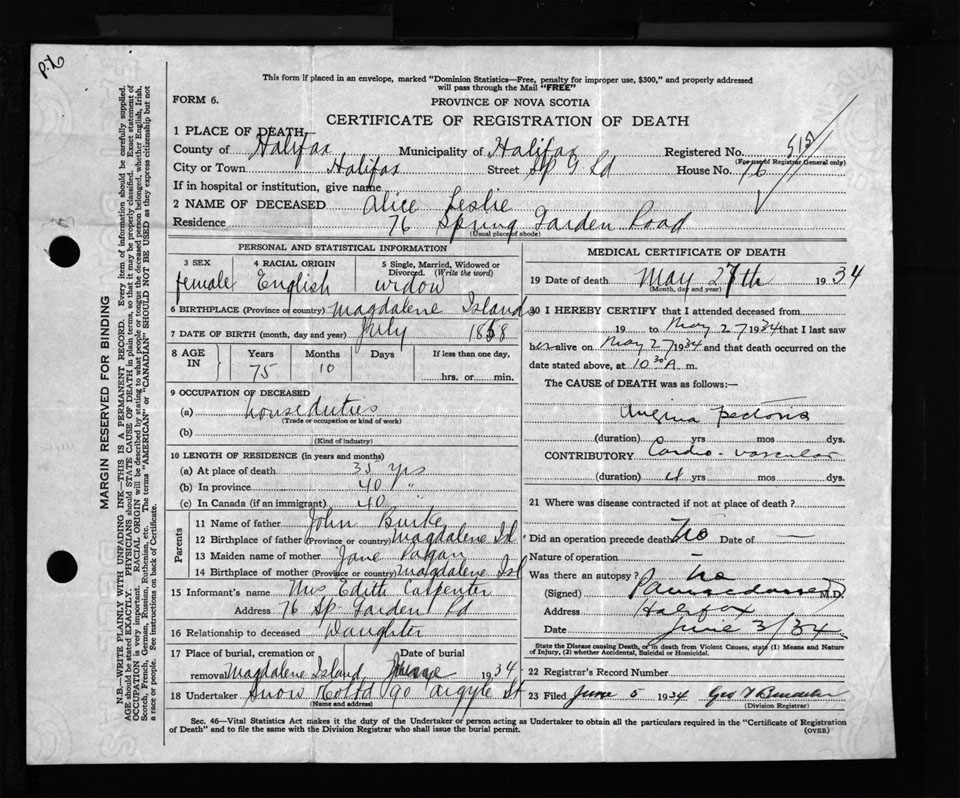 This form if placed in an envelope, marked "Dominion Statistics—Free, penalty for improper use, $300," and properly addressed
will pass through the Mail "FREE"
FORM 6.
PROVINCE OF NOVA SCOTIA
CERTIFICATE OF REGISTRATION OF DEATH
1 PLACE OF DEATH,
County of Halifax Municipality of Halifax Registered No.
(For use of Registrar General only)
City or Town Halifax Street Sp G Rd House No. 76
If in hospital or institution, give name
2 NAME OF DECEASED Alice Leslie
Residence 76 Spring Garden Road
(Usual place of abode)
PERSONAL AND STATISTICAL INFORMATION
3 SEX 4 RACIAL ORIGIN 5 Single, Married, Widowed or
Divorced. (Write the word)
female English widow
6 BIRTHPLACE (Province or country) Magdalene Islands
7 DATE OF BIRTH (month, day and year) July 1858
8 AGE IN Years Months Days If less than one day.
75 10 hrs. or min.
9 OCCUPATION OF DECEASED
(a) house duties
(Trade or occupation or kind of work)
(b)
(Kind of industry)
10 LENGTH OF RESIDENCE (in years and months)
(a) At place of death 35 yrs
(b) In province 40 "
(c) In Canada (if an immigrant) 40 "
Parents
11 Name of father John Burke
12 Birthplace of father (Province or country) Magdalene Isl
13 Maiden name of mother Jane
14 Birthplace of mother (Province or country) Magdalene Isl
15 Informant's name Mrs Edith Carpenter
Address 76 Sp Garden Rd
16 Relationship to deceased Daughter
17 Place of burial, cremation or Date of burial
removal Magdalene Island 1934
18 Undertaker Snow Co Ltd 90 Argyle St
(Name and address)
MEDICAL CERTIFICATE OF DEATH
19 Date of death May 27th 1934
(Month, day and year)
20 I HEREBY CERTIFY that I attended deceased from
19 to May 27 1934 that I last saw
her alive on May 27 1934 and that death occurred on the
date stated above, at 10 30 A m.
The CAUSE of DEATH was as follows:—
Angina pectoris
(duration) yrs mos dys.
CONTRIBUTORY Cardio-vascular
(duration) 4 yrs mos dys.
21 Where was disease contracted if not at place of death?
Did an operation precede death No Date of —
Nature of operation —
Was there an autopsy? no
(Signed) M.D.
Address Halifax
Date June 3/34
State the Disease causing Death, or in death from Violent Causes, state (1) Means and Nature
of Injury, (2) whether Accidental, Suicidal or Homicidal.
22 Registrar's Record Number
23 Filed June 5 1934
(Division Registrar)
Sec. 46—Vital Statistics Act makes it the duty of the Undertaker or person acting as Undertaker to obtain all the particulars required in the "Certificate of Registration
of Death" and to file the same with the Division Registrar who shall issue the burial permit.
(OVER)
MARGIN RESERVED FOR BINDING
N.B.—WRITE PLAINLY WITH UNFADING INK—THIS IS A PERMANENT RECORD. Every item of information should be carefully supplied.
AGE should be stated EXACTLY. PHYSICIANS should STATE CAUSE OF DEATH in plain terms, so that it may be properly classified. Exact statement of
OCCUPATION is very important. RACIAL ORIGIN will be described by stating to what people or tongue the deceased person belonged, whether English, Irish,
Scotch, French, German, Russian, Ruthenian, etc. The terms "AMERICAN" or "CANADIAN" SHOULD NOT BE USED as they express citizenship but not
a race or people. See instructions on back of Certificate.